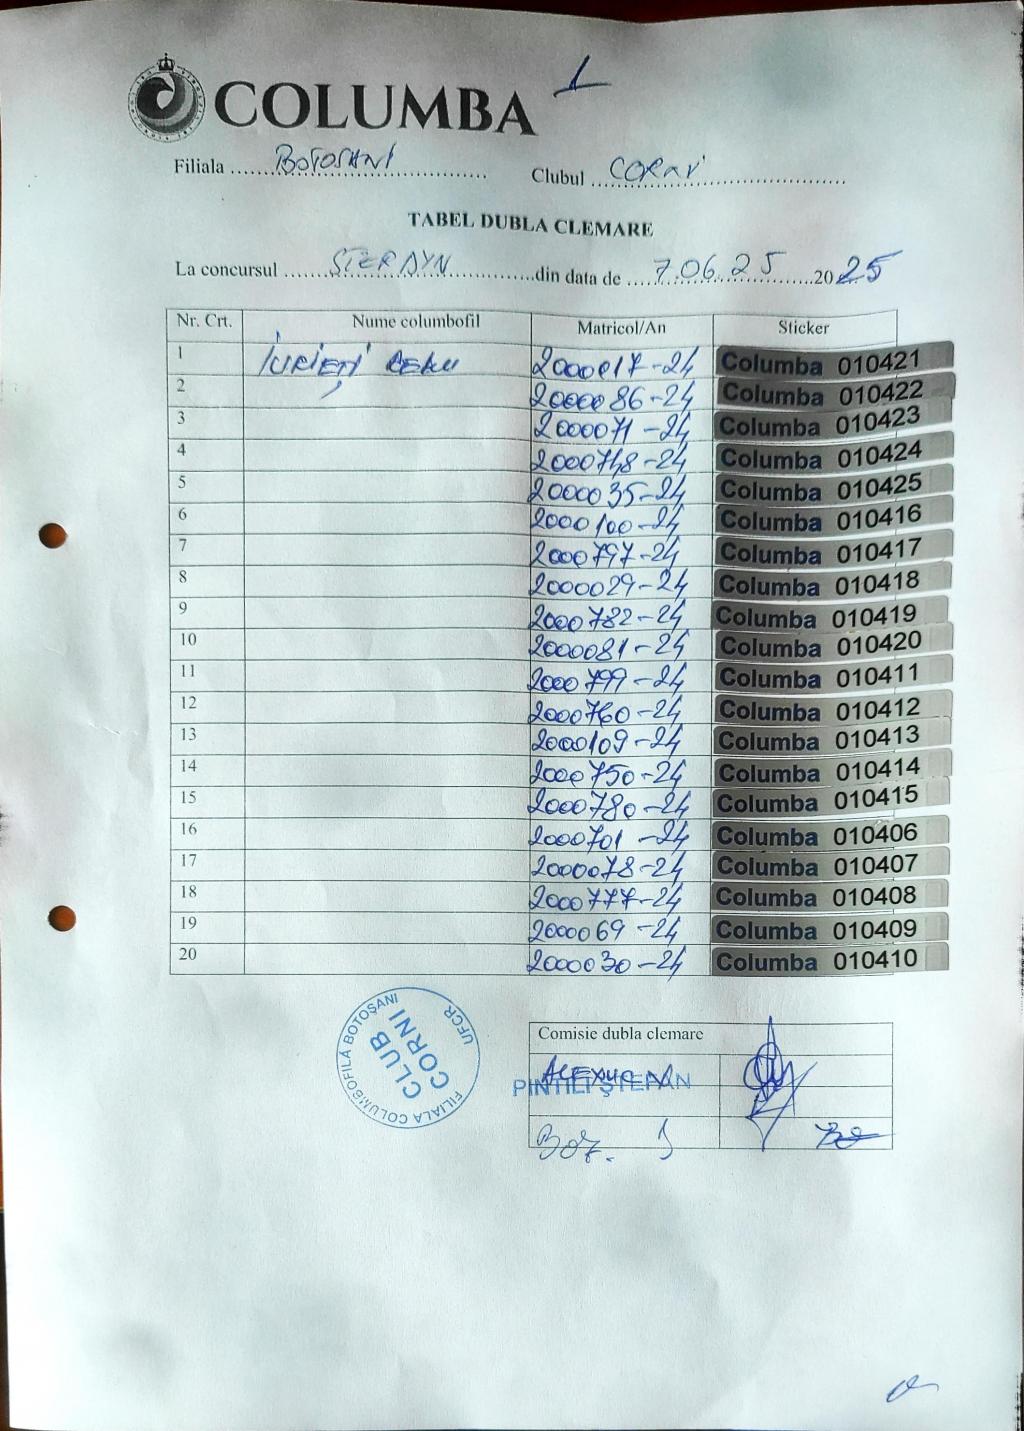 COLUMBA 1
Filiala ...... BOTOSANI ...... Clubul ...... CORNI ......
TABEL DUBLA CLEMARE
La concursul ...... din data de ...... 7.06.25 ...... 2025
Nr. Crt. Nume columbofil Matricol/An Sticker
1 2000017-24 Columba 010421
2 2000086-24 Columba 010422
3 2000071-24 Columba 010423
4 2000748-24 Columba 010424
5 2000035-24 Columba 010425
6 2000100-24 Columba 010416
7 2000797-24 Columba 010417
8 2000029-24 Columba 010418
9 2000782-24 Columba 010419
10 2000081-24 Columba 010420
11 2000799-24 Columba 010411
12 2000760-24 Columba 010412
13 2000109-24 Columba 010413
14 2000750-24 Columba 010414
15 2000780-24 Columba 010415
16 2000701-24 Columba 010406
17 2000078-24 Columba 010407
18 2000777-24 Columba 010408
19 2000069-24 Columba 010409
20 2000030-24 Columba 010410
FILIALA COLUMBOFILĂ BOTOŞANI
UFCR
CLUB
CORNI
Comisie dubla clemare
PINTILI ŞTEFAN